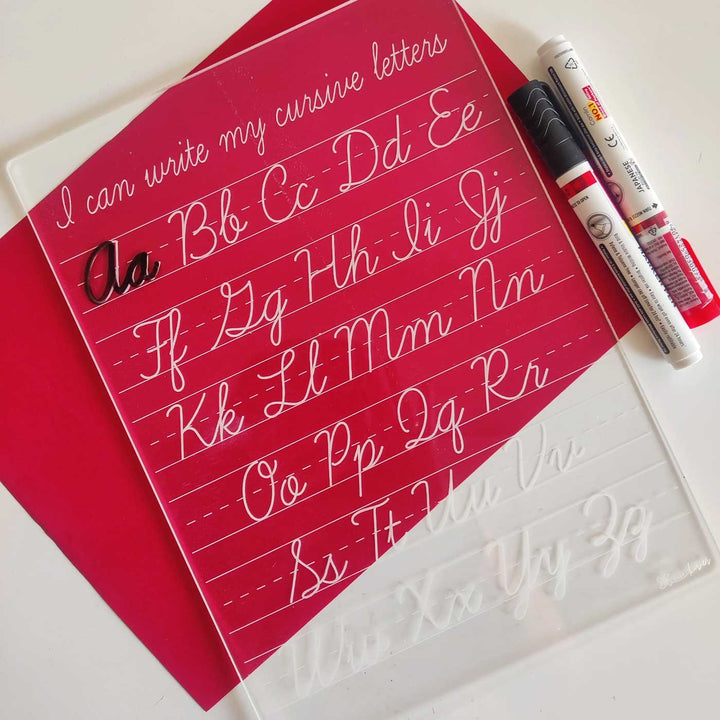 I can write my cursive letters
Aa Bb Cc Dd Ee
Ff Gg Hh Ii Jj
Kk Ll Mm Nn
Oo Pp Qq Rr
Ss Tt Uu Vv
Ww Xx Yy Zz
Canon NO.1
JAPANESE
CE